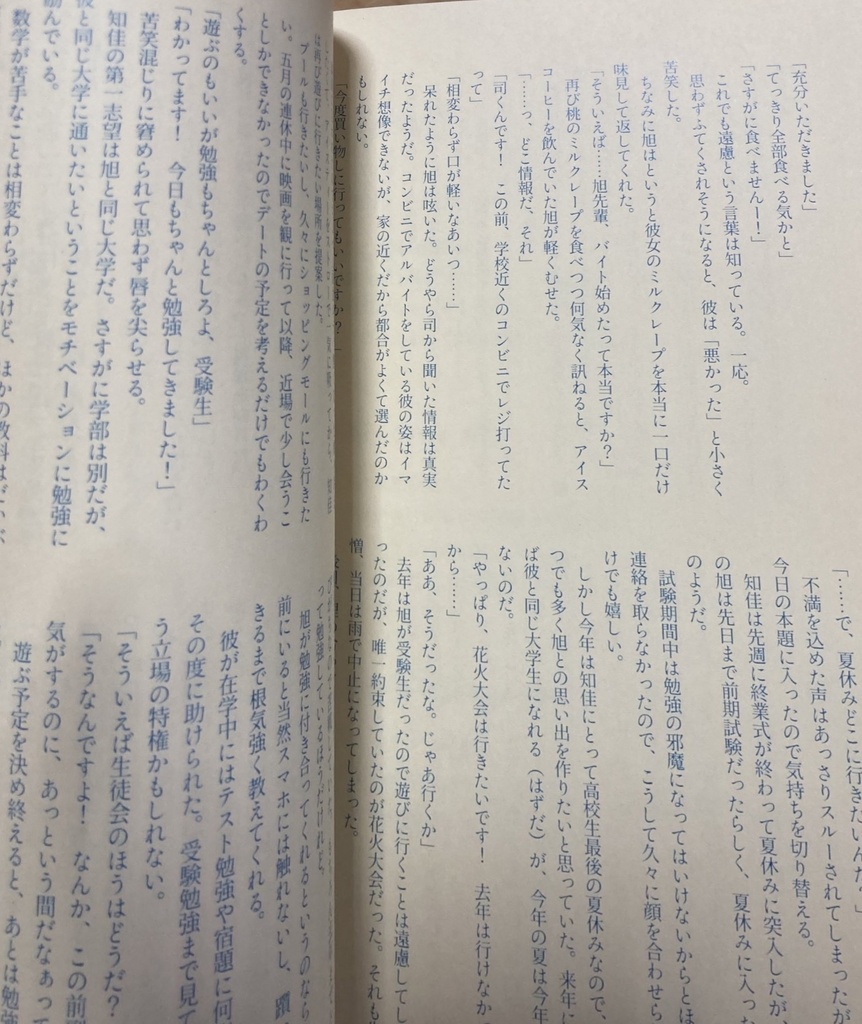 「充分いただきました」
「てっきり全部食べる気かと」
「さすがに食べませんー！」
これでも遠慮という言葉は知っている。一応。
思わずふてくされそうになると、彼は「悪かった」と小さく
苦笑した。
ちなみに旭はというと彼女のミルクレープを本当に一口だけ
味見して返してくれた。
「そういえば……旭先輩、バイト始めたって本当ですか？」
再び桃のミルクレープを食べつつ何気なく訊ねると、アイス
コーヒーを飲んでいた旭が軽くむせた。
「……っ、どこ情報だ、それ」
「司くんです！　この前、学校近くのコンビニでレジ打ってた
って」
「相変わらず口が軽いなあいつ……」
呆れたように旭は呟いた。どうやら司から聞いた情報は真実
だったようだ。コンビニでアルバイトをしている彼の姿はイマ
イチ想像できないが、家の近くだから都合がよくて選んだのか
もしれない。
「今度買い物しに行ってもいいですか？」
「……で、夏休みどこに行きたいんだ？」
不満を込めた声はあっさりスルーされてしまったが
今日の本題に入ったので気持ちを切り替える。
知佳は先週に終業式が終わって夏休みに突入したが、
の旭は先日まで前期試験だったらしく、夏休みに入った
のようだ。
試験期間中は勉強の邪魔になってはいけないからとほ
連絡を取らなかったので、こうして久々に顔を合わせら
けでも嬉しい。
しかし今年は知佳にとって高校生最後の夏休みなので、
つでも多く旭との思い出を作りたいと思っていた。来年に
ば彼と同じ大学生になれる（はずだ）が、今年の夏は今年
ないのだ。
「やっぱり、花火大会は行きたいです！　去年は行けなかっ
から……」
「ああ、そうだったな。じゃあ行くか」
去年は旭が受験生だったので遊びに行くことは遠慮してし
ったのだが、唯一約束していたのが花火大会だった。それも
憎、当日は雨で中止になってしまった。
は再び遊びに行きたい場所を提案した。
プールも行きたいし、久々にショッピングモールにも行きた
い。五月の連休中に映画を観に行って以降、近場で少し会うこ
としかできなかったのでデートの予定を考えるだけでもわくわ
くする。
「遊ぶのもいいが勉強もちゃんとしろよ、受験生」
「わかってます！　今日もちゃんと勉強してきました！」
苦笑混じりに窘められて思わず唇を尖らせる。
知佳の第一志望は旭と同じ大学だ。さすがに学部は別だが、
彼と同じ大学に通いたいということをモチベーションに勉強に
励んでいる。
数学が苦手なことは相変わらずだけど、ほかの教科は
って勉強しているほうだけれど
旭が勉強に付き合ってくれるというのなら
前にいると当然スマホには触れないし、躓
きるまで根気強く教えてくれる。
彼が在学中にはテスト勉強や宿題に何
その度に助けられた。受験勉強まで見て
う立場の特権かもしれない。
「そういえば生徒会のほうはどうだ？
「そうなんですよ！　なんか、この前
気がするのに、あっという間だなぁって
遊ぶ予定を決め終えると、あとは勉強